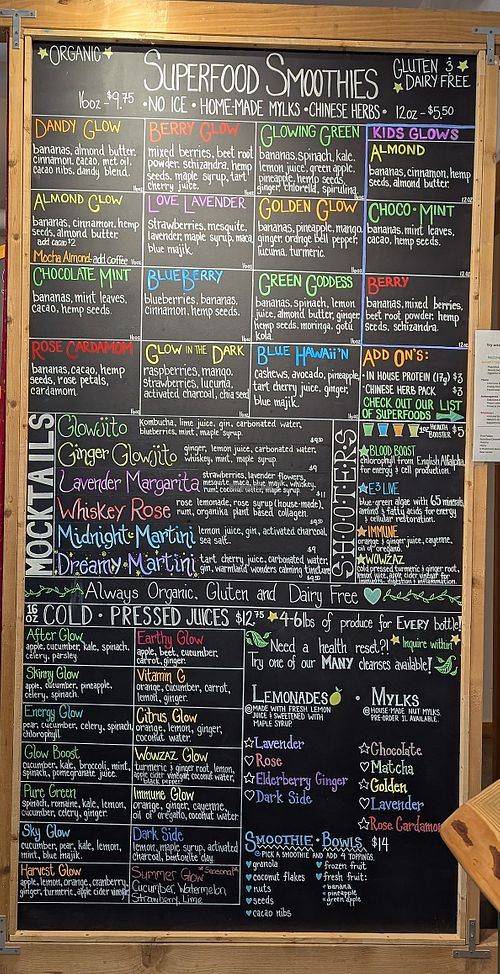 ORGANIC
SUPERFOOD SMOOTHIES
GLUTEN &
DAIRY FREE
16oz - $9.75
• NO ICE • HOME-MADE MYLKS • CHINESE HERBS •
12oz - $5.50
DANDY GLOW
bananas, almond butter,
cinnamon, cacao, mct oil,
cacao nibs, dandy blend.
BERRY GLOW
mixed berries, beet root
powder, schizandra, hemp
seeds, maple syrup, tart
cherry juice.
GLOWING GREEN
bananas, spinach, kale,
lemon juice, green apple,
pineapple, hemp seeds,
ginger, chlorella, spirulina
KIDS GLOWS
ALMOND
bananas, cinnamon, hemp
seeds, almond butter.
ALMOND GLOW
bananas, cinnamon, hemp
seeds, almond butter.
add cacao $2
Mocha Almond: add coffee
LOVE LAVENDER
Strawberries, mesquite,
lavender, maple syrup, maca,
blue majik.
GOLDEN GLOW
bananas, pineapple, mango,
ginger, orange bell pepper,
lucuma, turmeric.
CHOCO-MINT
bananas, mint leaves,
cacao, hemp seeds.
CHOCOLATE MINT
bananas, mint leaves,
cacao, hemp seeds.
BLUEBERRY
blueberries, bananas,
cinnamon, hemp seeds.
GREEN GODDESS
bananas, spinach, lemon
juice, almond butter, ginger,
hemp seeds, moringa, gotu
kola.
BERRY
bananas, mixed berries,
beet root powder, hemp
seeds, schizandra.
ROSE CARDAMOM
bananas, cacao, hemp
seeds, rose petals,
cardamom.
GLOW IN THE DARK
raspberries, mango,
strawberries, lucuma,
activated charcoal, chia seed
BLUE HAWAII'N
cashews, avocado, pineapple,
tart cherry juice, ginger,
blue majik.
ADD ON'S:
- IN HOUSE PROTEIN (17g) $3
- CHINESE HERB PACK $3
CHECK OUT OUR LIST
OF SUPERFOODS
MOCKTAILS
Glowjito
Kombucha, lime juice, gin, carbonated water,
blueberries, mint, maple syrup.
Ginger Glowjito
ginger, lemon juice, carbonated water,
whiskey, mint, maple syrup.
$9
Lavender Margarita
strawberries, lavender flowers,
mesquite, maca, blue majik, whiskey,
rum, coconut water, maple syrup.
$11
Whiskey Rose
rose lemonade, rose syrup (house-made),
rum, organika plant based collagen.
Midnight-Martini
lemon juice, gin, activated charcoal,
sea salt.
Dreamy-Martini
tart cherry juice, carbonated water,
gin, wormland wonders calming tincture
SHOOTERS
HEALTH
BOOSTER
$5
BLOOD BOOST
chlorophyll from English Alfalfa
for energy & cell production.
E3 LIVE
blue-green algae with 65 minerals,
amino & fatty acids for energy
& cellular restoration.
IMMUNE
orange & ginger juice, cayenne,
oil of oregano.
WOWZAZ
cold pressed turmeric & ginger root,
lemon juice, apple cider vinegar for
Always Organic, Gluten and Dairy Free
16 OZ COLD • PRESSED JUICES $12.75
4-6lbs of produce for EVERY bottle!
After Glow
apple, cucumber, kale, spinach,
celery, parsley.
Earthy Glow
apple, beet, cucumber,
carrot, ginger.
Skinny Glow
apple, cucumber, pineapple,
celery, spinach.
Vitamin G
orange, cucumber, carrot,
lemon, ginger.
Energy Glow
pear, cucumber, celery, spinach,
chlorophyll.
Citrus Glow
orange, lemon, ginger,
coconut water.
Glow Boost
cucumber, kale, broccoli, mint,
spinach, pomegranate juice.
Wowzaz Glow
turmeric & ginger root, lemon,
apple cider vinegar, coconut water,
black pepper.
Pure Green
spinach, romaine, kale, lemon,
cucumber, celery, ginger.
Immune Glow
orange, ginger, cayenne,
oil of oregano, coconut water.
Sky Glow
cucumber, pear, kale, lemon,
mint, blue majik.
Dark Side
lemon, maple syrup, activated
charcoal, bentonite clay.
Harvest Glow
apple, lemon, orange, cranberry,
ginger, turmeric, apple cider vinegar.
Summer Glow *seasonal*
Cucumber, Watermelon
Strawberry, Lime
Need a health reset?!
Inquire within
Try one of our MANY cleanses available!
LEMONADES
MADE WITH FRESH LEMON
JUICE & SWEETENED WITH
MAPLE SYRUP
Lavender
Rose
Elderberry Ginger
Dark Side
• MYLKS
HOUSE-MADE NUT MYLKS,
PRE-ORDER 1L AVAILABLE.
Chocolate
Matcha
Golden
Lavender
Rose Cardamom
SMOOTHIE • BOWLS $14
PICK A SMOOTHIE AND ADD 4 TOPPINGS.
granola
coconut flakes
nuts
seeds
cacao nibs
frozen fruit
fresh fruit:
• banana
• pineapple
• green apple